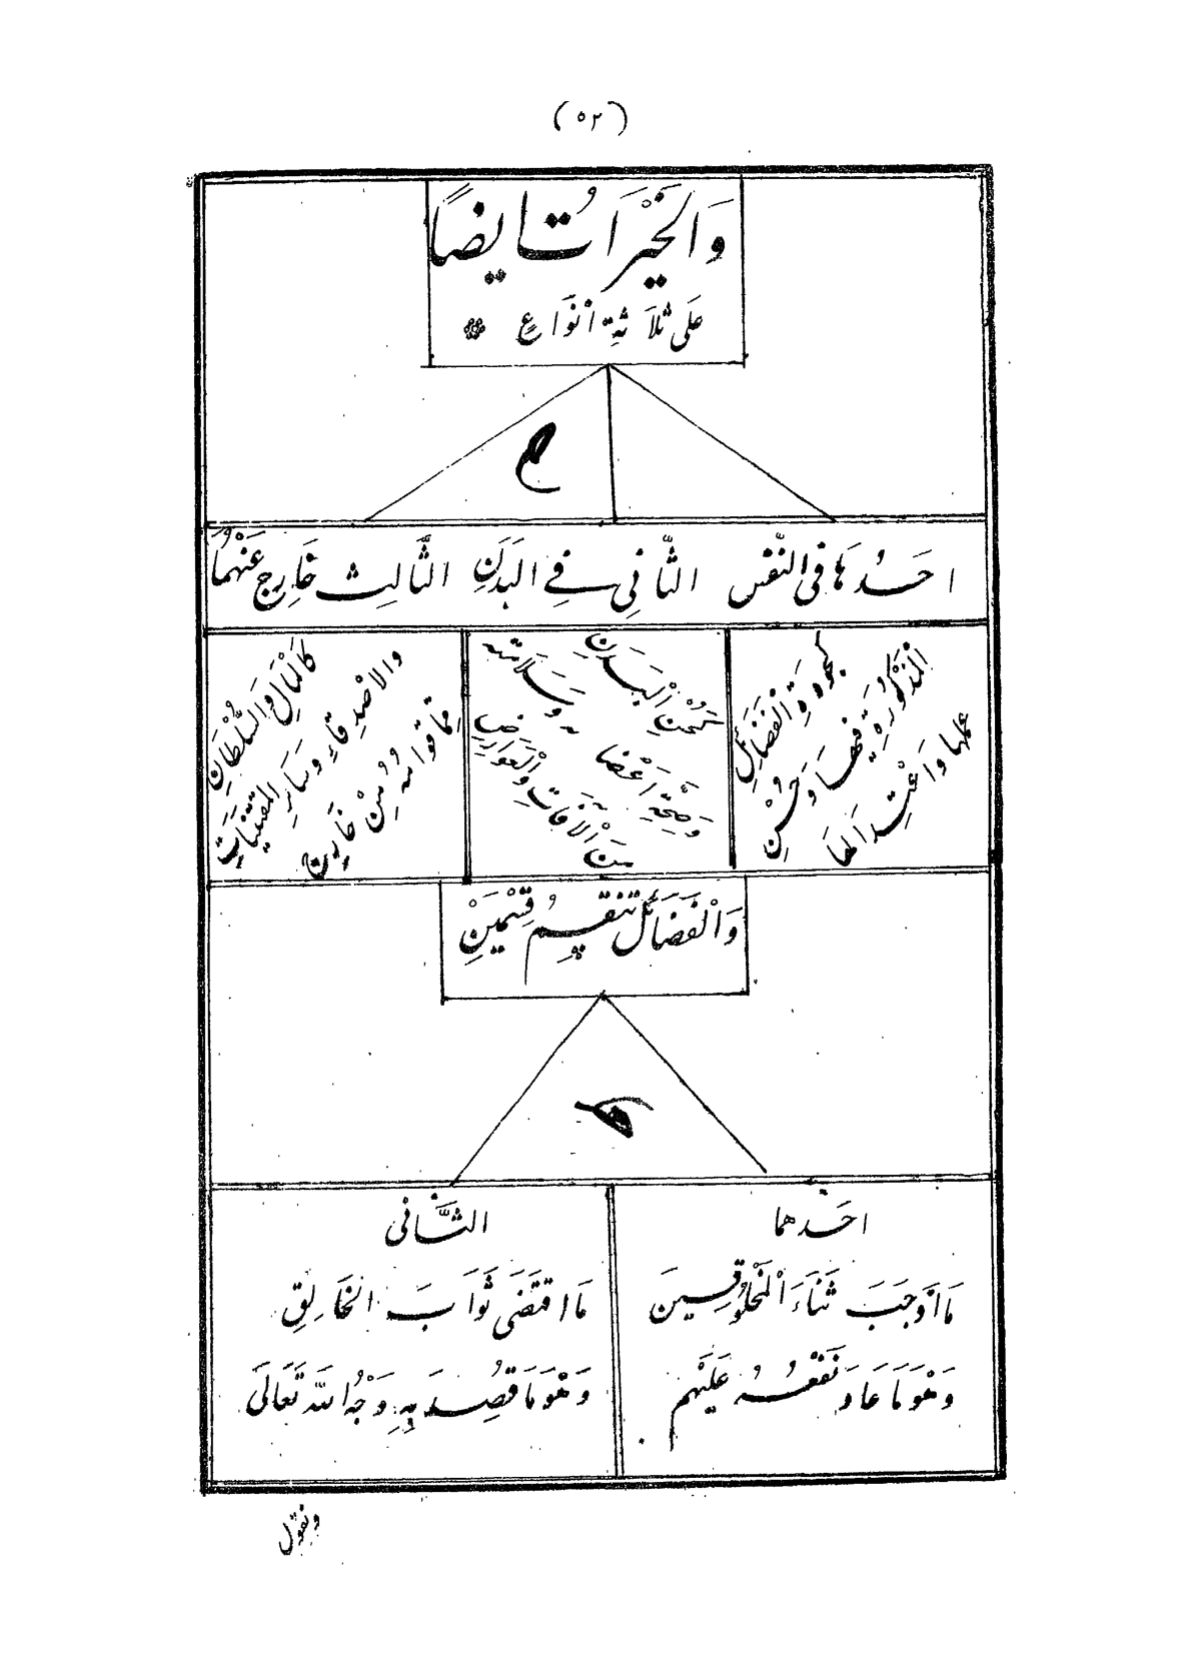 (٥٢)
وَالخَيْرَاتُ ايضًا
عَلَى ثَلَاثَةِ اَنْوَاعٍ
احَدُهَا فى النَّفْس الثَّانِى فِے البَدَنِ الثَّالِث خَارِج عَنْهُمَا
كجَودَةِ الفَضَائِل
المَذْكُورَةِ فيهَا وَحُسْنِ
عملها وَاعْتِدَالهَا
كَحُسْنِ الْبَدَنِ
وَسَلَامَتِه
وَصِحَّةِ اَعْضَائِه
مِنَ الْآفَاتِ وَالْعَوَارِضِ
كَالمَالِ وَالسُّلْطَانِ
والاصْدِقَاءِ وَسَائِرِ المقتنيَات
خَارِجٍ
وَالْفَضَائِل تنقسِمُ قِسْمَيْنِ
احَدهما
مَا اَوْجَبَ ثَنَاءَ الْمَخْلُوقِينَ
وَهْوَ مَا عَادَ نَفْعُهُ عَلَيْهم
الثَّانى
مَا اقتَضَى ثَوَابَ الخَالِقِ
وَهْوَ مَا قُصِدَ بِهِ وَجْهُ اللّٰه تَعَالَى
ونقول